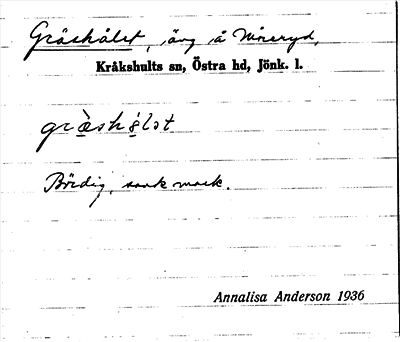 Gräshålet, äng å Möreryd,
Kråkshults sn, Östra hd, Jönk. l.
græ̀sh
Bördig, sank mark.
Annalisa Anderson 1936